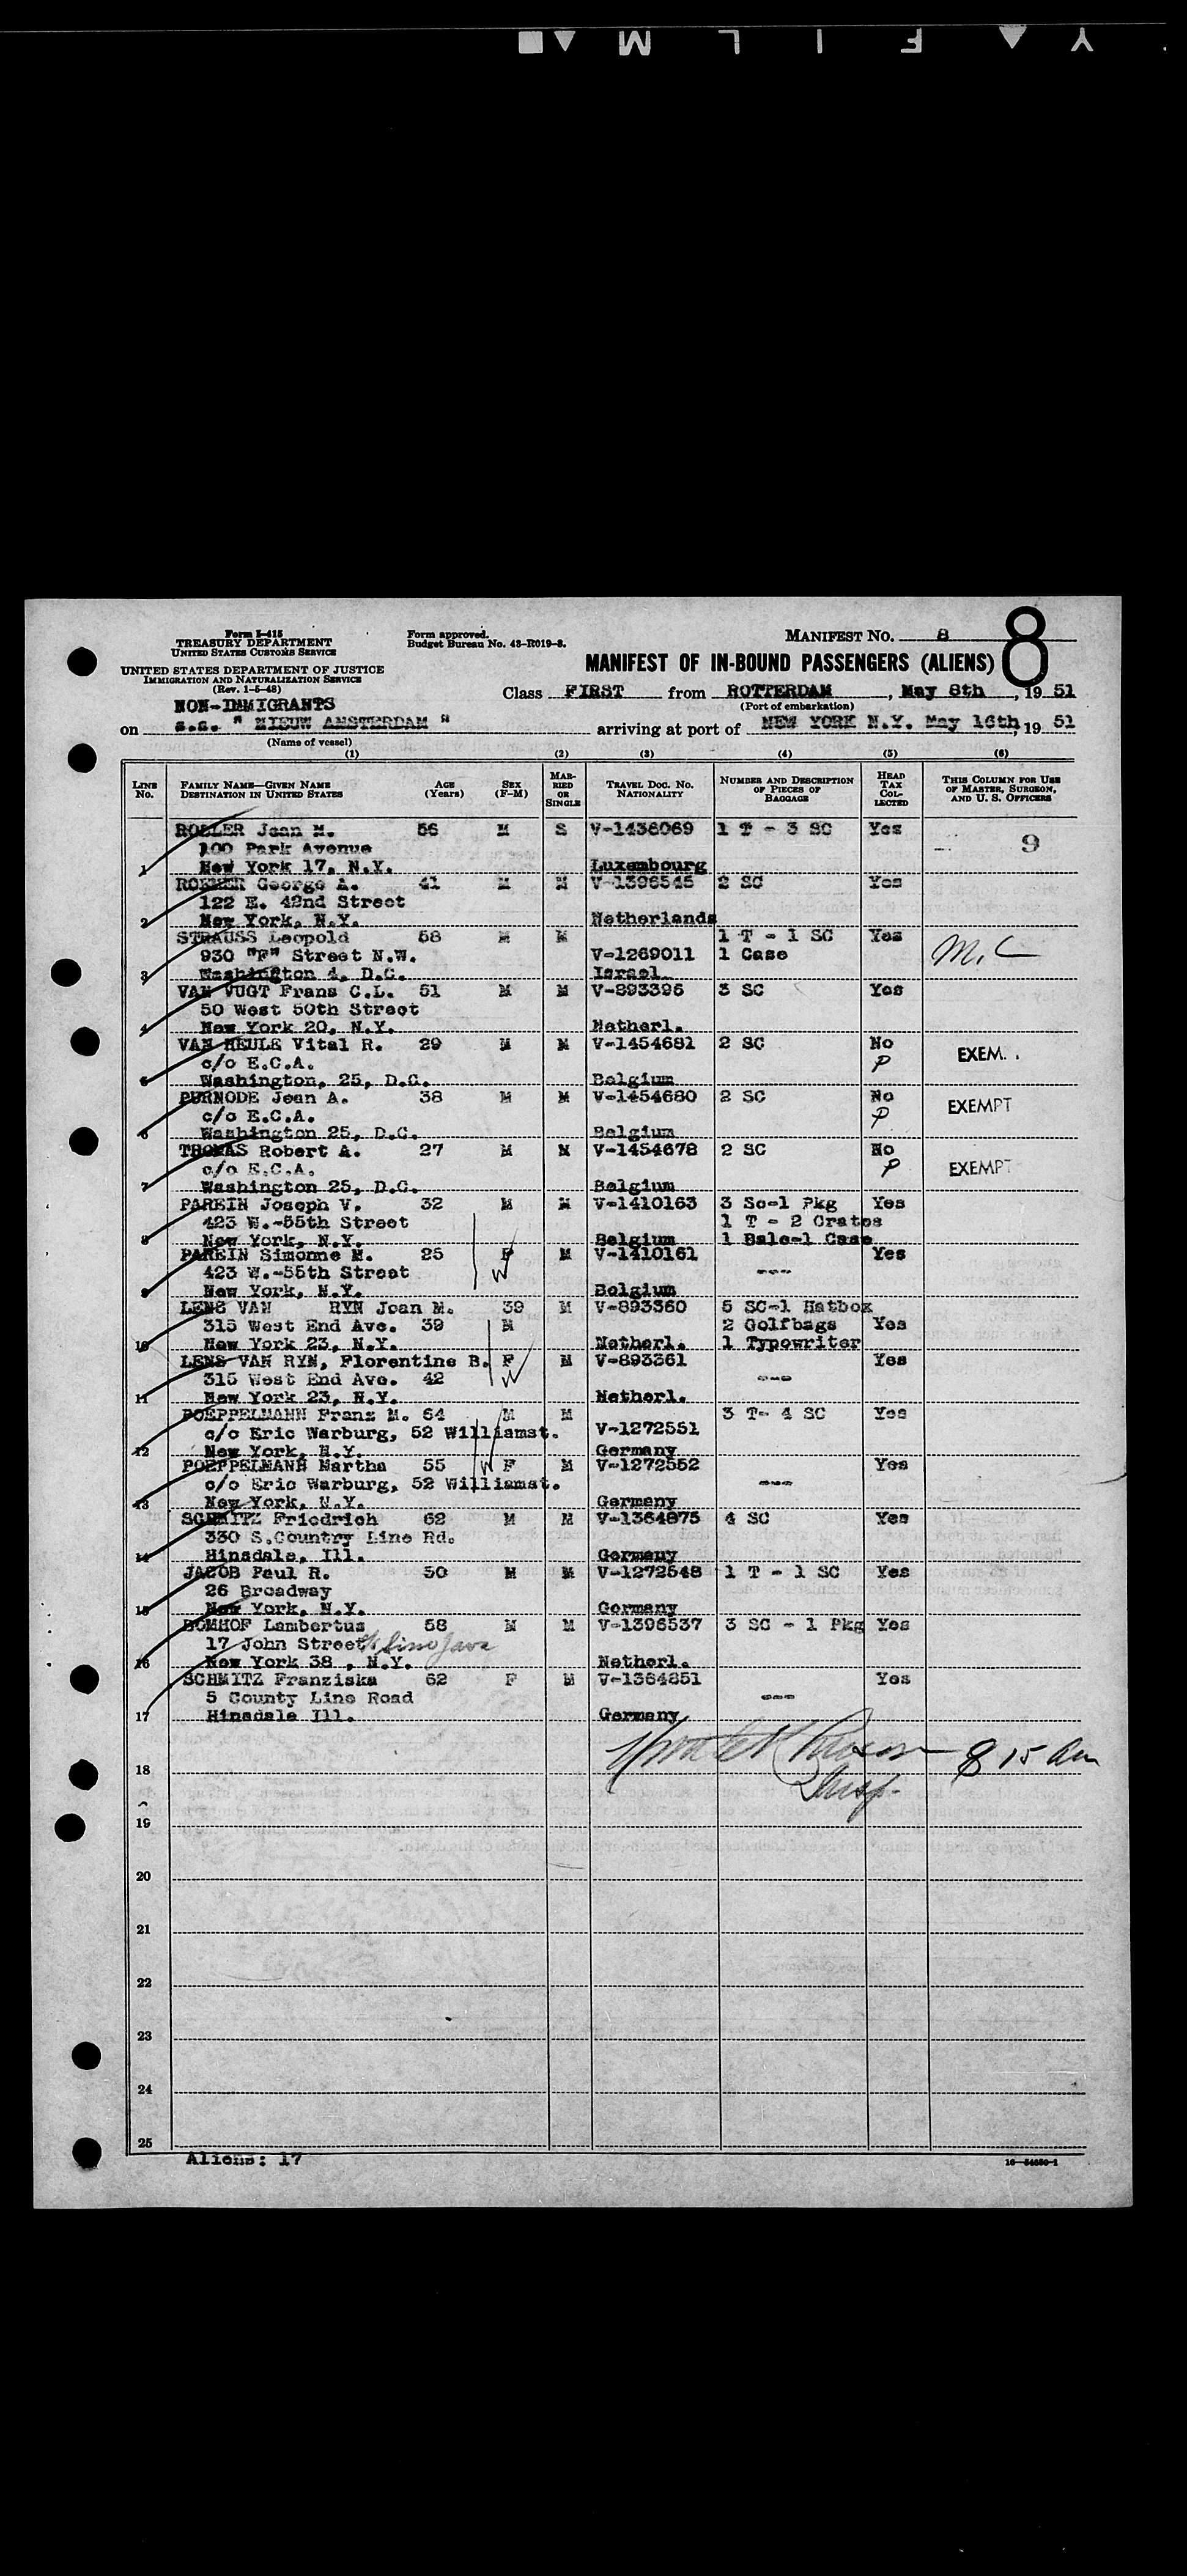 Y L I F L M
Form I-415
TREASURY DEPARTMENT
UNITED STATES CUSTOMS SERVICE
UNITED STATES DEPARTMENT OF JUSTICE
IMMIGRATION AND NATURALIZATION SERVICE
(Rev. 1-5-48)
Form approved.
Budget Bureau No. 43-R019-3.
MANIFEST NO. 8
8
MANIFEST OF IN-BOUND PASSENGERS (ALIENS)
NON-IMMIGRANTS
Class FIRST from ROTTERDAM, May 8th, 19 51
(Port of embarkation)
on s.s. " NIEUW AMSTERDAM " arriving at port of NEW YORK N.Y. May 16th, 19 51
(Name of vessel)
(1) (2) (3) (4) (5) (6)
LINE NO. FAMILY NAME—GIVEN NAME DESTINATION IN UNITED STATES AGE (Years) SEX (F-M) MARRIED OR SINGLE TRAVEL DOC. NO. NATIONALITY NUMBER AND DESCRIPTION OF PIECES OF BAGGAGE HEAD TAX COLLECTED THIS COLUMN FOR USE OF MASTER, SURGEON, AND U. S. OFFICERS
ROLLER Jean M. 56 M S V-1436069 1 T - 3 SC Yes
100 Park Avenue 9
1 New York 17, N.Y. Luxembourg
ROEMER George A. 41 M M V-1396545 2 SC Yes
122 E. 42nd Street
2 New York, N.Y. Netherlands
STRAUSS Leopold 58 M M 1 T - 1 SC Yes
930 "F" Street N.W. V-1269011 1 Case M.C
3 Washington 4, D.C. Israel
VAN VUGT Frans C.L. 51 M M V-893396 3 SC Yes
50 West 50th Street
4 New York 20, N.Y. Netherl.
VAN HEULE Vital R. 29 M M V-1454681 2 SC No
c/o E.C.A. P EXEM
5 Washington, 25, D.C. Belgium
PURNODE Jean A. 38 M M V-1454680 2 SC No
c/o E.C.A. P EXEMPT
6 Washington 25, D.C. Belgium
THOMAS Robert A. 27 M M V-1454678 2 SC No
c/o E.C.A. P EXEMPT
7 Washington 25, D.C. Belgium
PAREIN Joseph V. 32 M M V-1410163 3 Sc-1 Pkg Yes
423 W.-55th Street 1 T - 2 Crates
8 New York, N.Y. Belgium 1 Bale-1 Case
PAREIN Simonne M. 25 F M V-1410161 Yes
423 W.-55th Street W ---
9 New York, N.Y. Belgium
LENS VAN RYN Jean M. 39 M V-893360 5 SC-1 Hatbox
315 West End Ave. 39 M 2 Golfbags Yes
10 New York 23, N.Y. Netherl. 1 Typewriter
LENS VAN RYN, Florentine B. F M V-893361 Yes
315 West End Ave. 42 W ---
11 New York 23, N.Y. Netherl.
POEPPELMANN Franz M. 64 M M 3 T- 4 SC Yes
c/o Eric Warburg, 52 Williamst. V-1272551
12 New York, N.Y. Germany
POEPPELMANN Martha 55 W F M V-1272552 Yes
c/o Eric Warburg, 52 Williamst. ---
13 New York, N.Y. Germany
SCHMITZ Friedrich 62 M M V-1364875 4 SC Yes
330 S.Country Line Rd.
14 Hinsdale, Ill. Germany
JACOB Paul R. 50 M M V-1272548 1 T - 1 SC Yes
26 Broadway
15 New York, N.Y. Germany
BOMHOF Lambertus 58 M M V-1396537 3 SC - 1 Pkg Yes
17 John Street Java
16 New York 38 , N.Y. Netherl.
SCHMITZ Franziska 62 F M V-1364851 Yes
5 County Line Road ---
17 Hinsdale Ill. Germany
8 15 am
18 Insp.
19
20
21
22
23
24
25
Aliens: 17